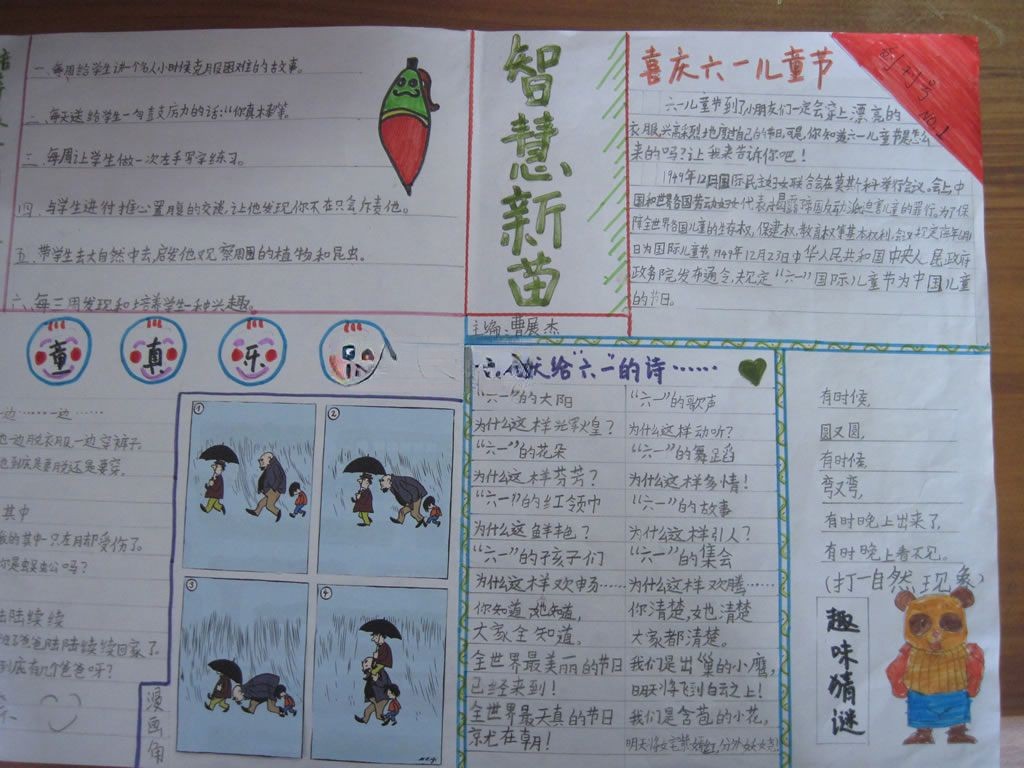 一、每周给学生讲一个名人小时候克服困难的故事。
二、每天送给学生一句支支力的话:“你真棒”等。
三、每周让学生做一次左手写字练习。
四、与学生进行推心置腹的交谈,让他发现你不在只会斥责他。
五、带学生去大自然中去,启发他观察周围的植物和昆虫。
六、每三周发现和培养学生一种兴趣。
智慧新苗
主编:曹展杰
喜庆六一儿童节
创刊号
NO.1
六一儿童节到了小朋友们一定会穿上漂亮的
衣服,兴高采烈地度过自己的节日,可是,你知道六一儿童节是怎么
来的吗?让我来告诉你吧!
1949年12月国际民主妇女联合会在莫其科举行会议,会上,中
国和世界各国劳动妇女代表
迫害儿童的罪行。为了保
障全世界各国儿童的生存权,保健权,教育权等基本权利,会议规定每年6月1
日为国际儿童节,1949年12月23日中华人民共和国中央人民政府
政务院发布通令,规定“六一”国际儿童节为中国儿童
的节日。
童
真
乐
一边……一边……
他一边脱衣服一边穿裤子。
他到底是要脱还是要穿。
其中
我的其中一只左脚受伤了。
你是蜈蚣吗?
陆陆续续
爸爸陆陆续续回家了。
到底有几个爸爸呀?
①
②
③
④
漫画角
献给“六一”的诗……
“六一”的太阳
为什么这样光辉煌?
“六一”的花朵
为什么这样芬芳?
“六一”的红领巾
为什么这鲜艳?
“六一”的孩子们
为什么这样欢畅……
你知道她知道,
大家全知道。
全世界最美丽的节日
已经来到!
全世界最天真的节日
就在今朝!
“六一”的歌声
为什么这样动听?
“六一”的舞蹈
为什么这样多情!
“六一”的故事
为什么这样引人?
“六一”的集会
为什么这样欢腾……
你清楚,她清楚
大家都清楚。
我们是出巢的小鹰,
明天将飞到白云之上!
我们是含苞的小花,
有时侯,
圆又圆,
有时侯,
弯又弯,
有时晚上出来了,
有时晚上看不见。
(打一自然现象)
趣味猜谜